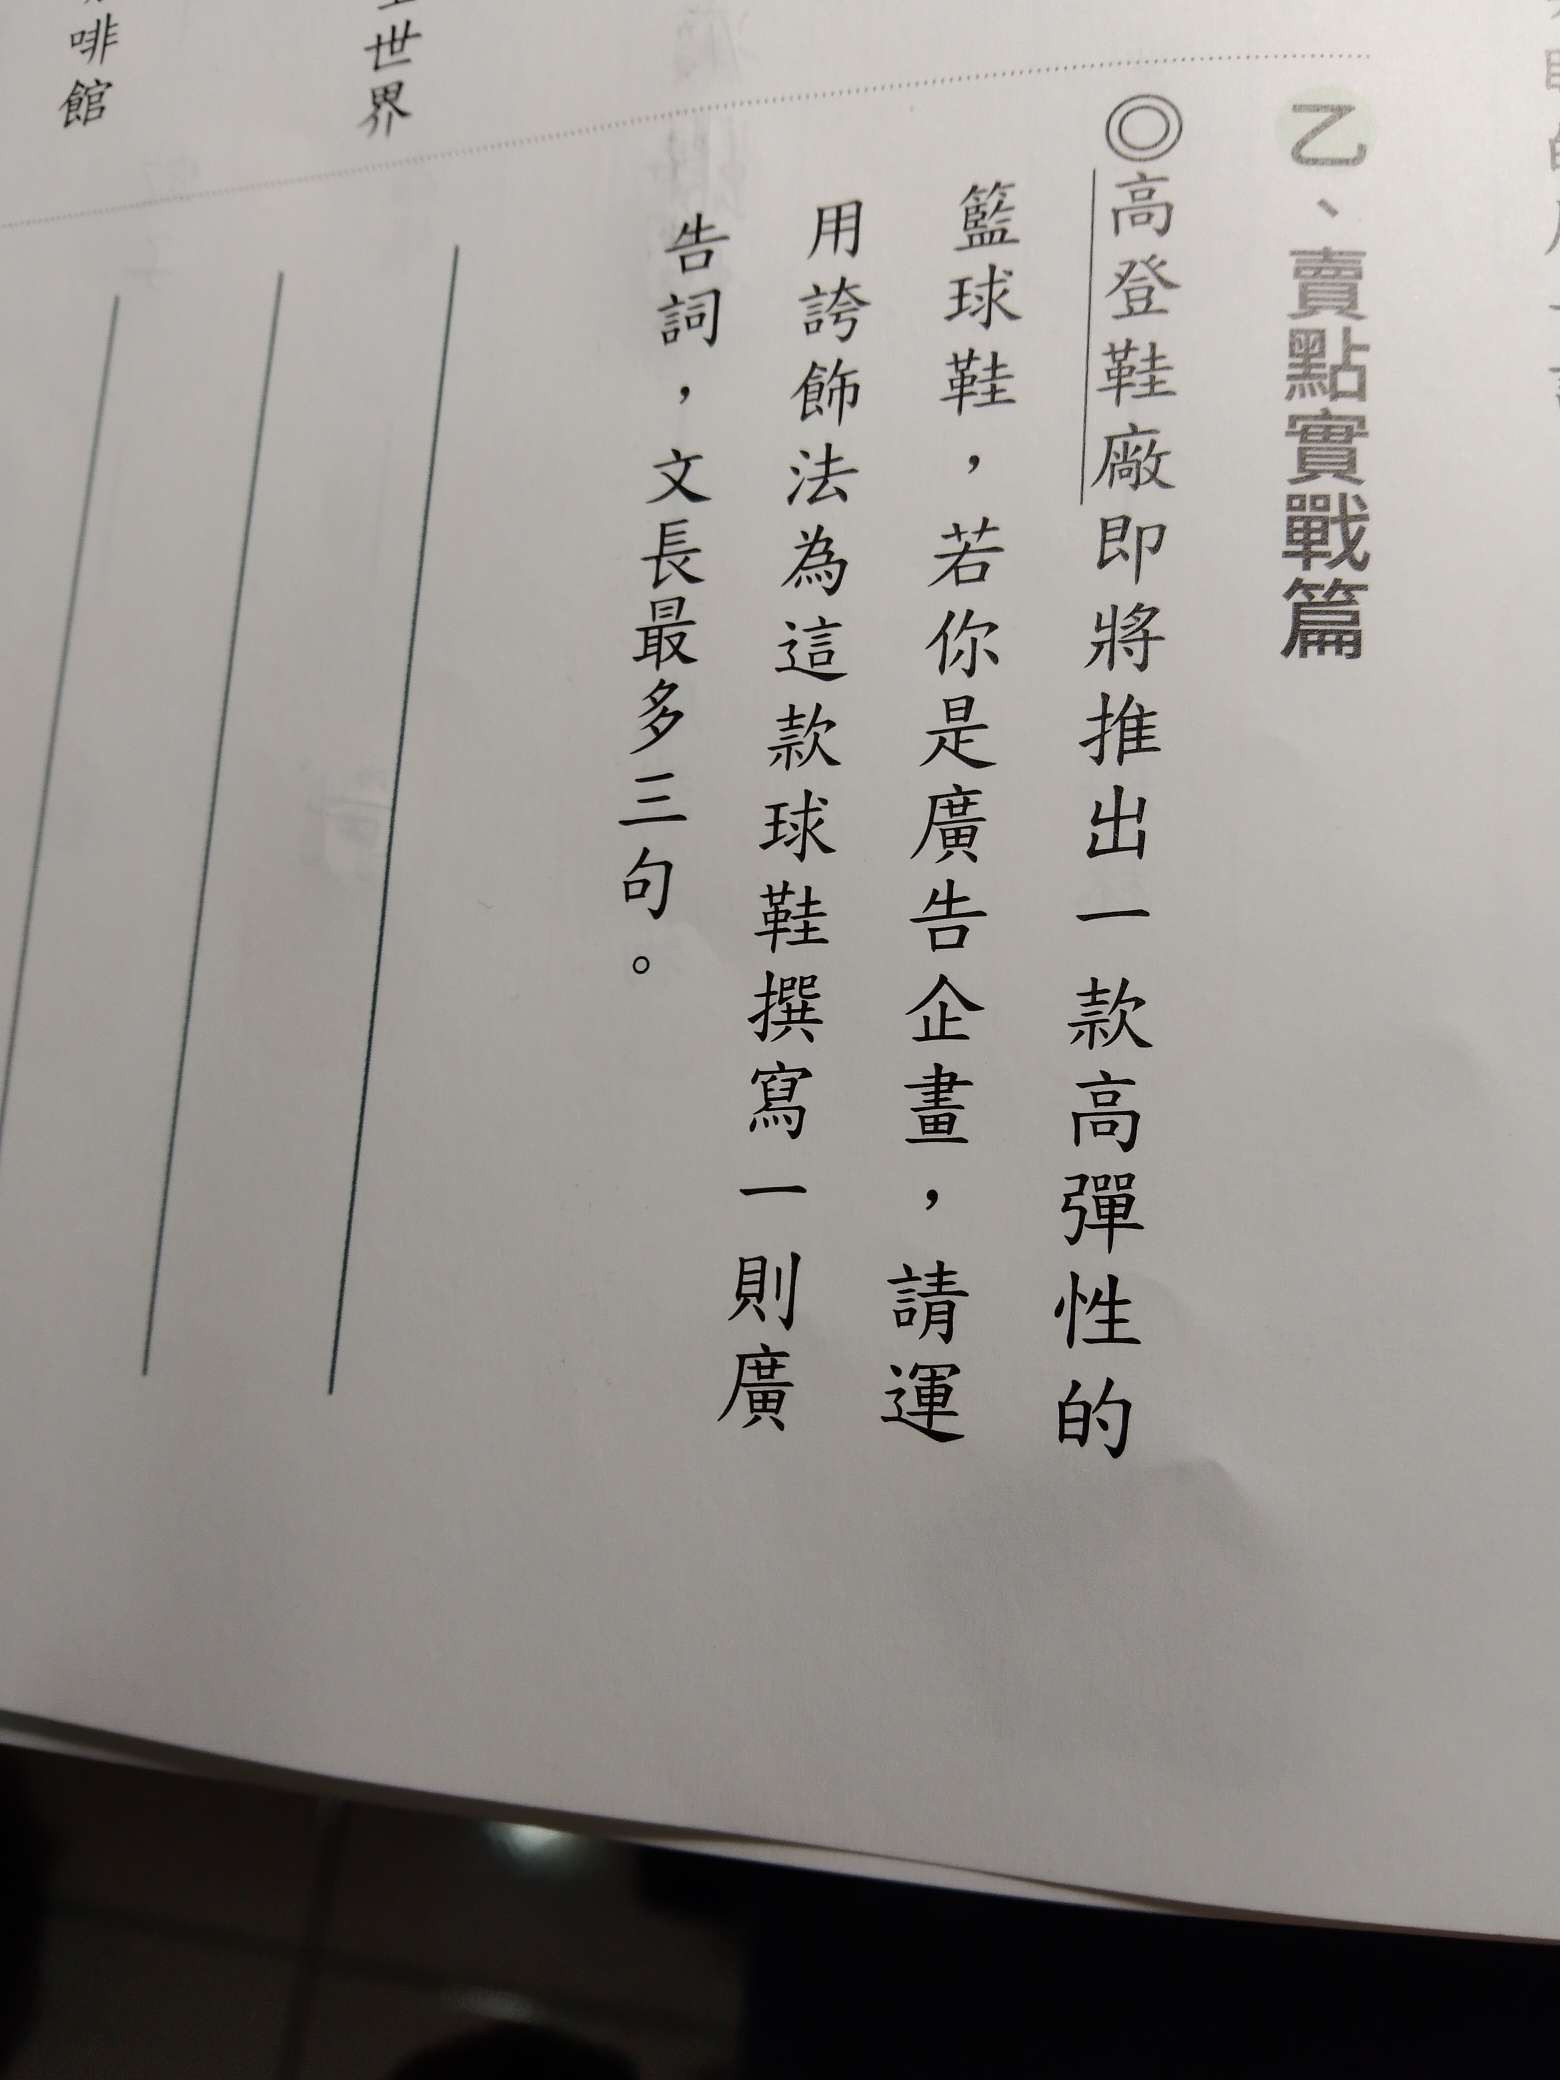 乙、賣點實戰篇
◎高登鞋廠即將推出一款高彈性的
籃球鞋，若你是廣告企畫，請運
用誇飾法為這款球鞋撰寫一則廣
告詞，文長最多三句。
世界
啡館